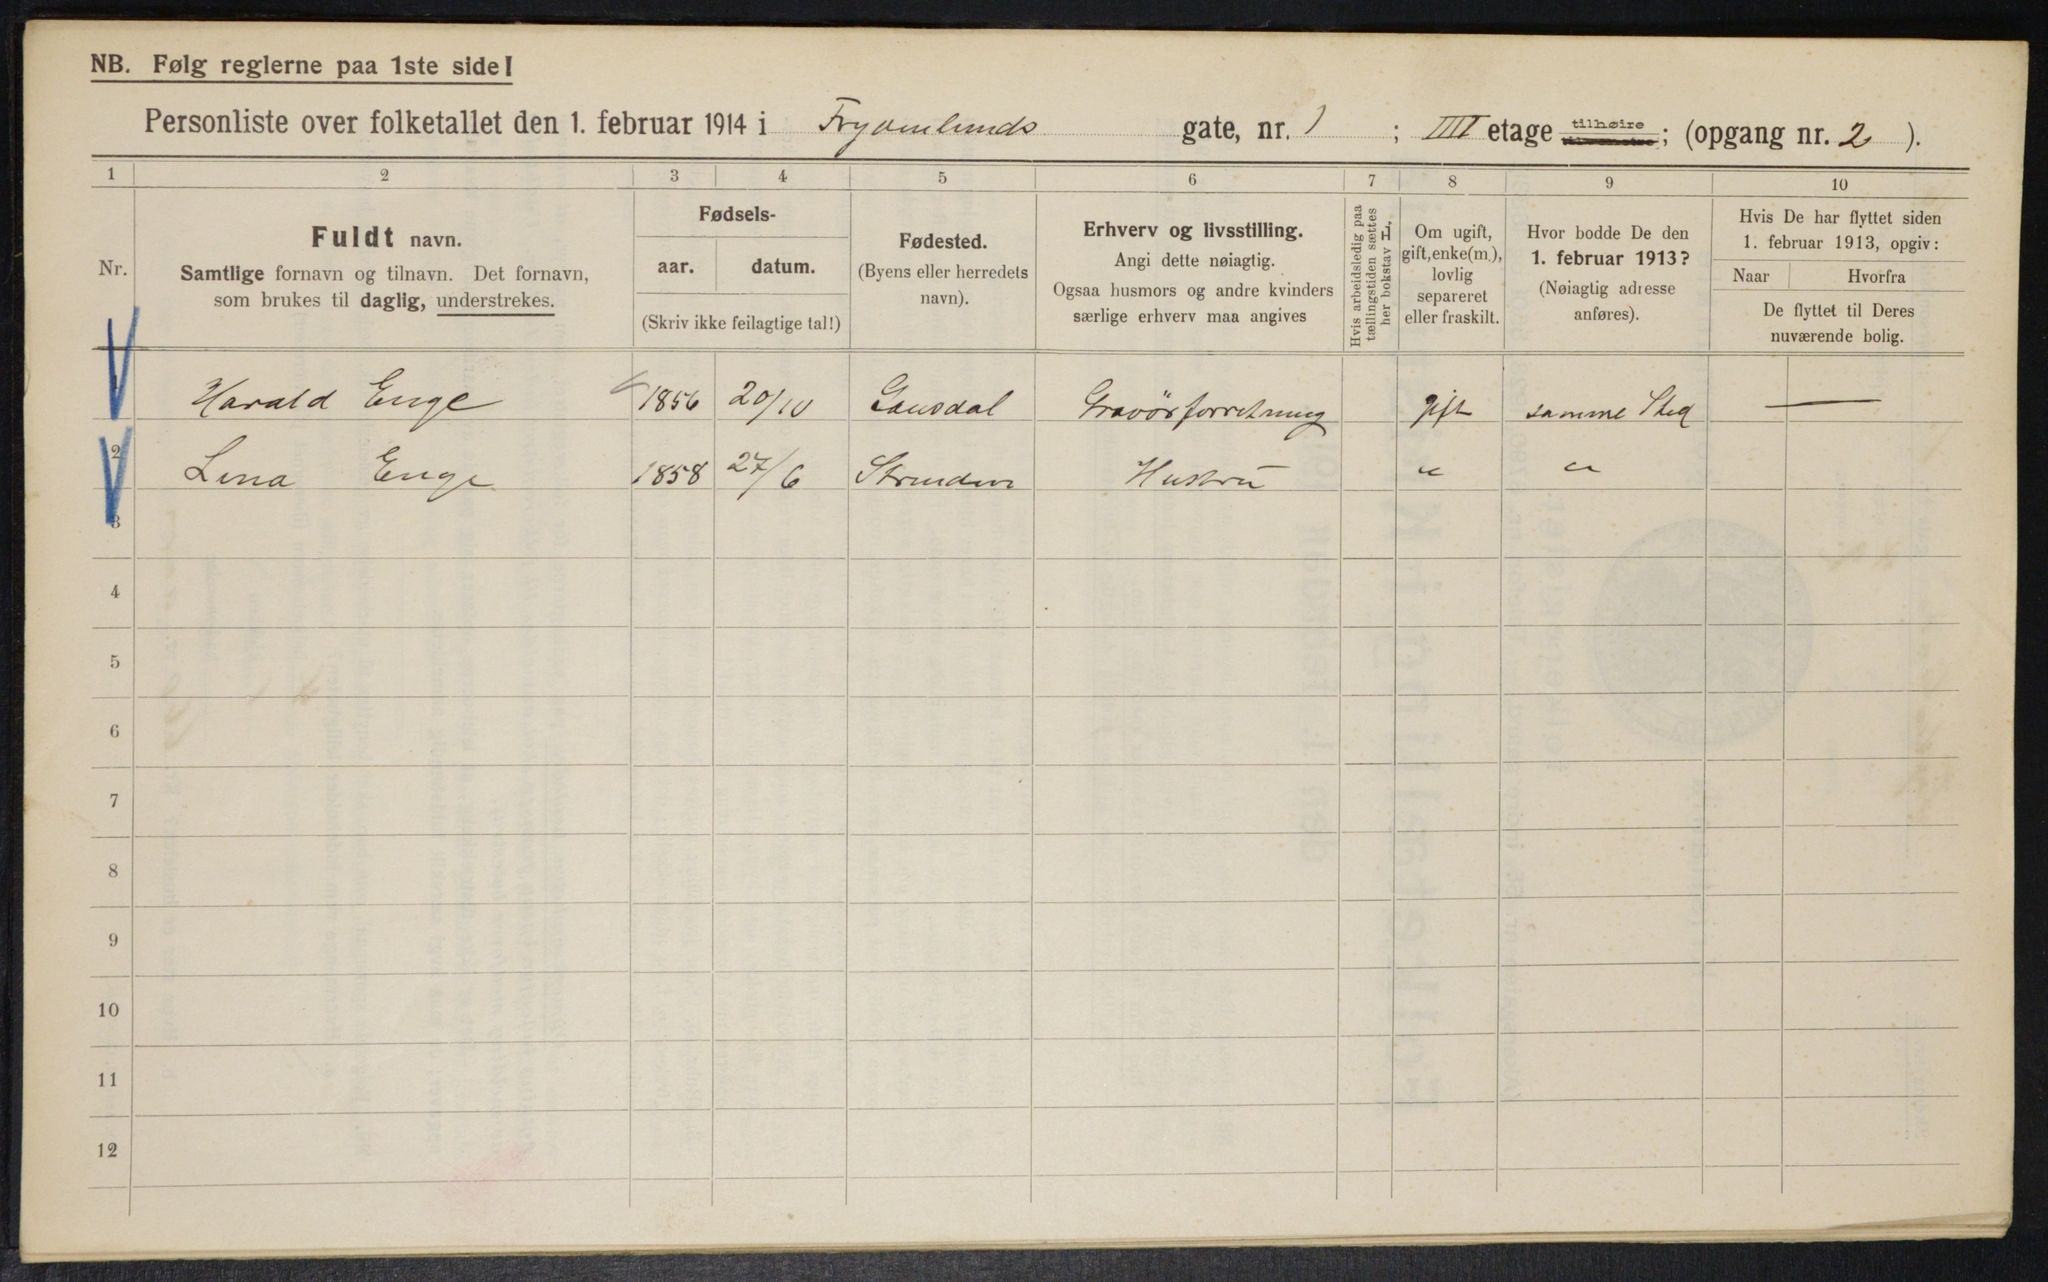 NB. Følg reglerne paa 1ste side!
Personliste over folketallet den 1. februar 1914 i Frydenlunds gate, nr. 1 ; IIII etage tilhøire ; (opgang nr. 2 ).
1 2 3 4 5 6 7 8 9 10
Nr.
Fuldt navn.
Samtlige fornavn og tilnavn. Det fornavn,
som brukes til daglig, understrekes.
Fødsels-
aar. datum.
(Skriv ikke feilagtige tal!)
Fødested.
(Byens eller herredets
navn).
Erhverv og livsstilling.
Angi dette nøiagtig.
Ogsaa husmors og andre kvinders
særlige erhverv maa angives
Hvis arbeidsledig paa
tællingstiden sættes
her bokstav L.
Om ugift,
gift, enke(m.),
lovlig
separeret
eller fraskilt.
Hvor bodde De den
1. februar 1913?
(Nøiagtig adresse
anføres).
Hvis De har flyttet siden
1. februar 1913, opgiv:
Naar Hvorfra
De flyttet til Deres
nuværende bolig.
1 Harald Enge 1856 20/10 Gausdal Gravørforretning gift samme Sted —
2 Lina Enge 1858 27/6 Strinden Hustru " "
3
4
5
6
7
8
9
10
11
12